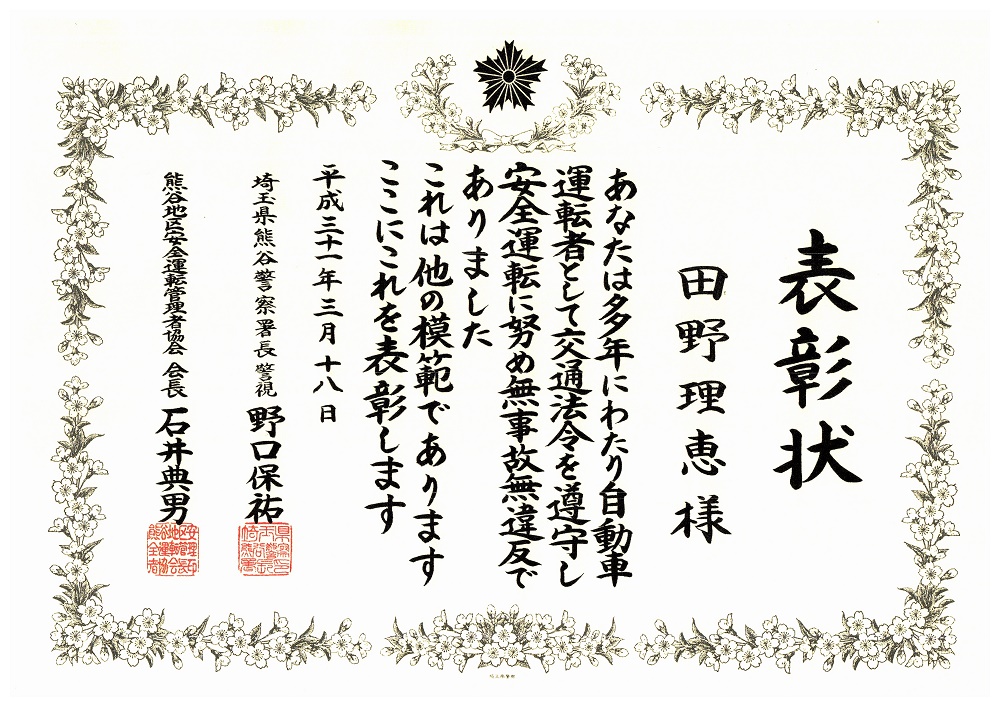 表彰状
田野理恵様
あなたは多年にわたり自動車
運転者として交通法令を遵守し
安全運転に努め無事故無違反で
ありました
これは他の模範であります
ここにこれを表彰します
平成三十一年三月十八日
埼玉県熊谷警察署長 警視 野口保祐
熊谷地区安全運転管理者協会 会長 石井典男